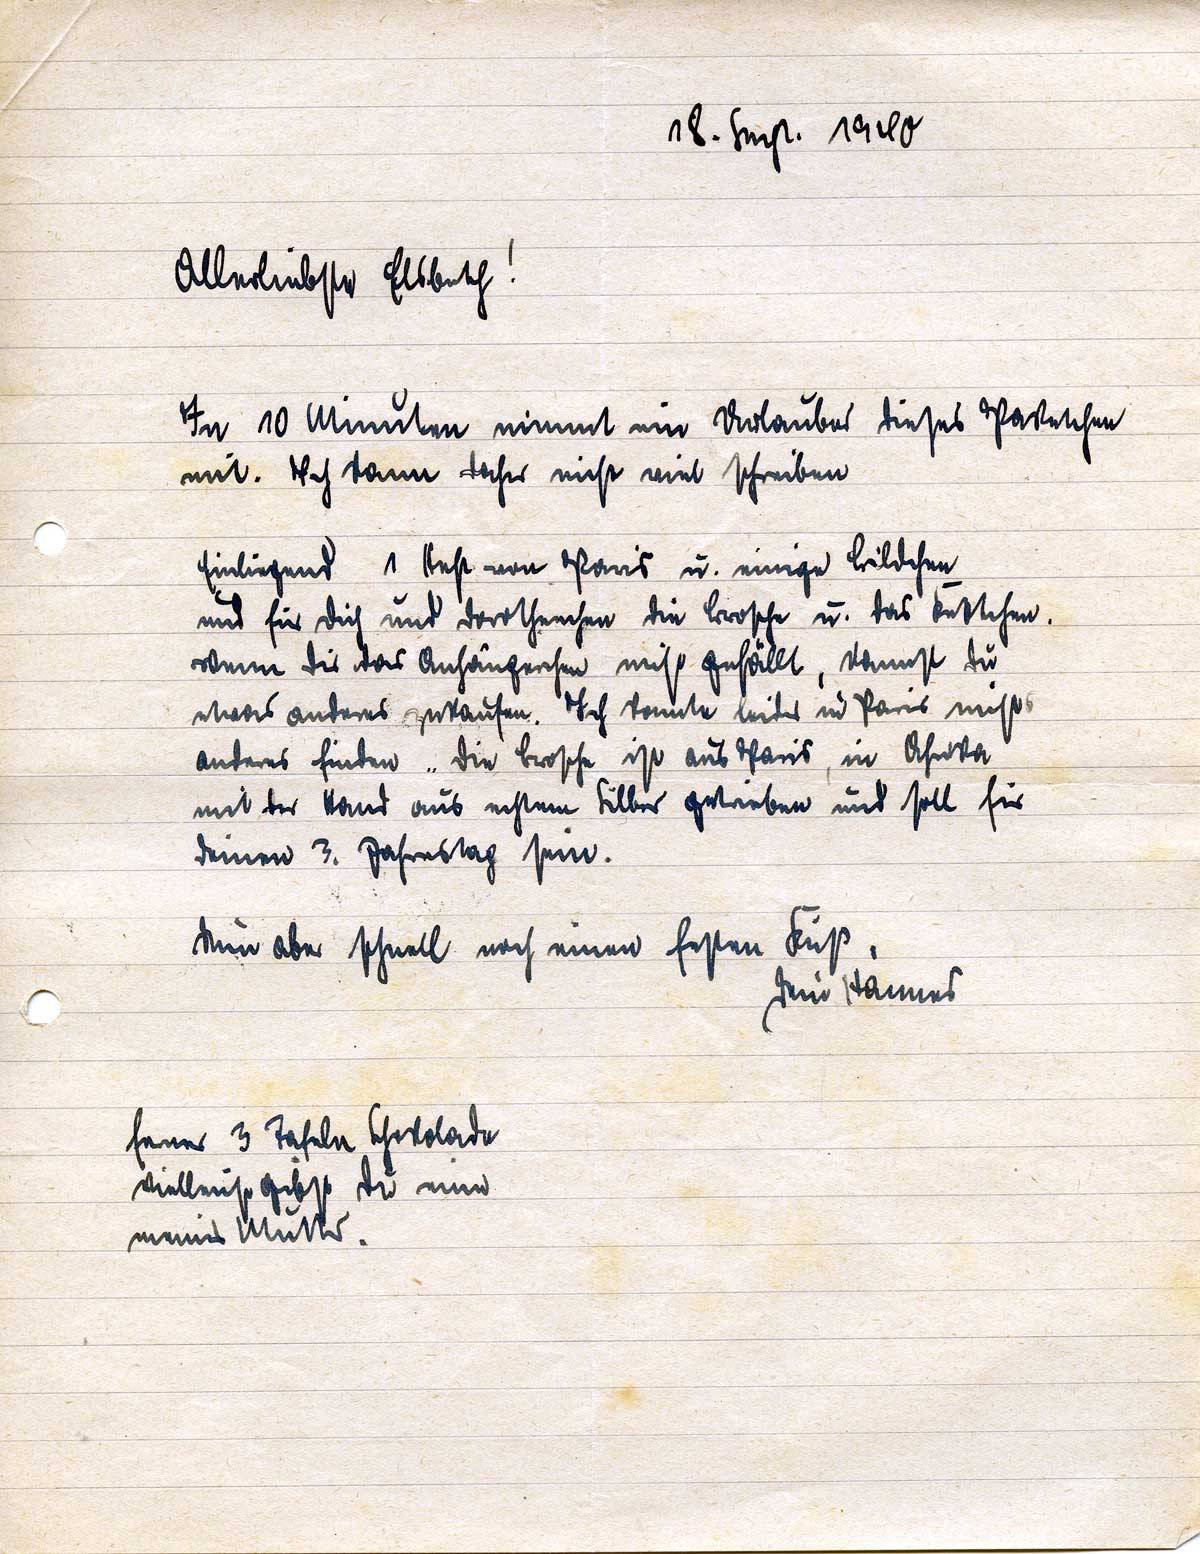 18. Sept. 1940
Allerliebste Elsbeth!
In 10 Minuten nimmt ein Urlauber dieses Paketchen
mit. Ich kann daher nicht viel schreiben
Einliegend 1 Heft von Paris u. einige Bildchen
und für Dich und Dorotheechen die Brosche u. das Kettchen.
Wenn Dir das Anhängerchen nicht gefällt, kannst Du
etwas anderes zukaufen. Ich konnte leider in Paris nichts
anderes finden. Die Brosche ist aus Paris, in Afrika
mit der Hand aus echtem Silber getrieben und soll für
Deinen 3. Jahrestag sein.
Nun aber schnell noch einen festen Kuß.
Dein Hannes
Ferner 3 Tafeln Schokolade
vielleicht gibst Du eine
meiner Mutter.